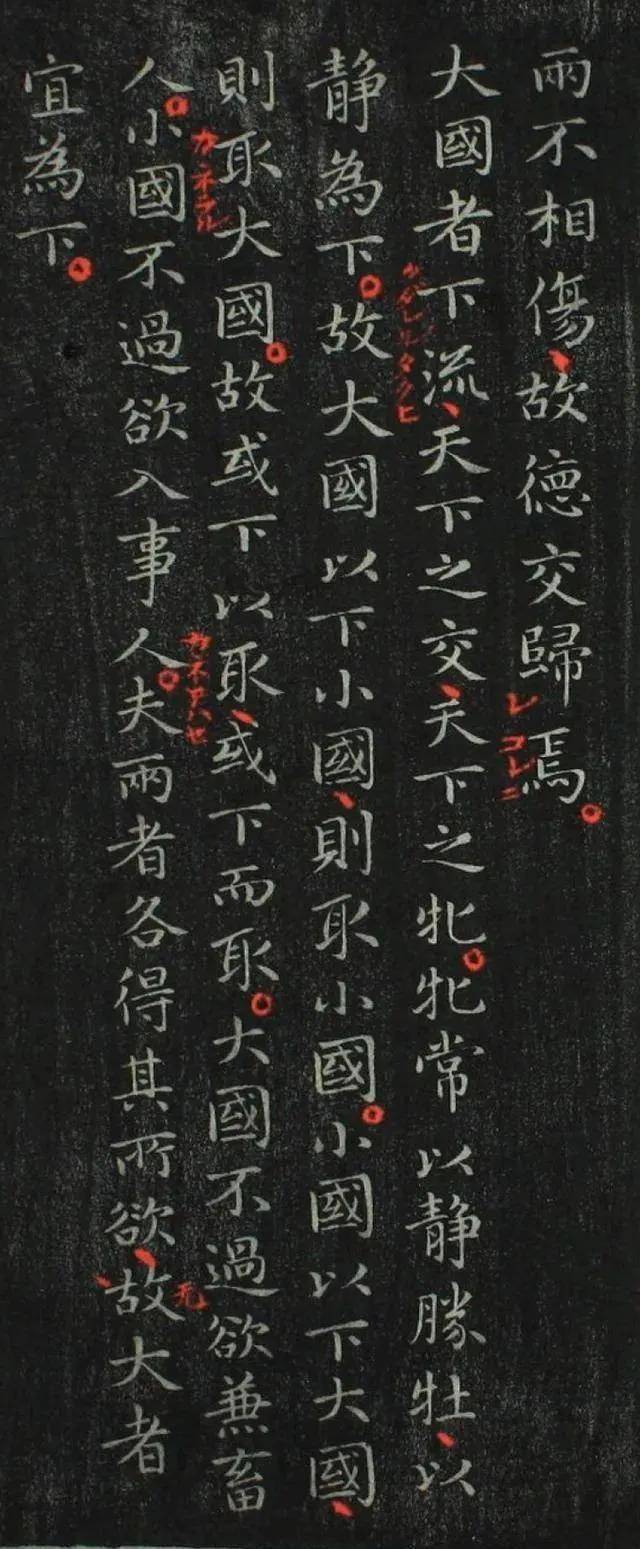 兩不相傷故德交歸焉
大國者下流天下之交天下之牝牝常以靜勝牡以
靜為下故大國以下小國則取小國小國以下大國
則取大國故或下以取或下而取大國不過欲兼畜
人小國不過欲入事人夫兩者各得其所欲故大者
宜為下